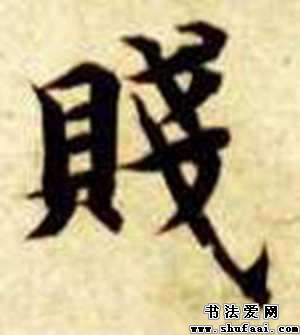 賤
书法爱网
www.shufaai.com